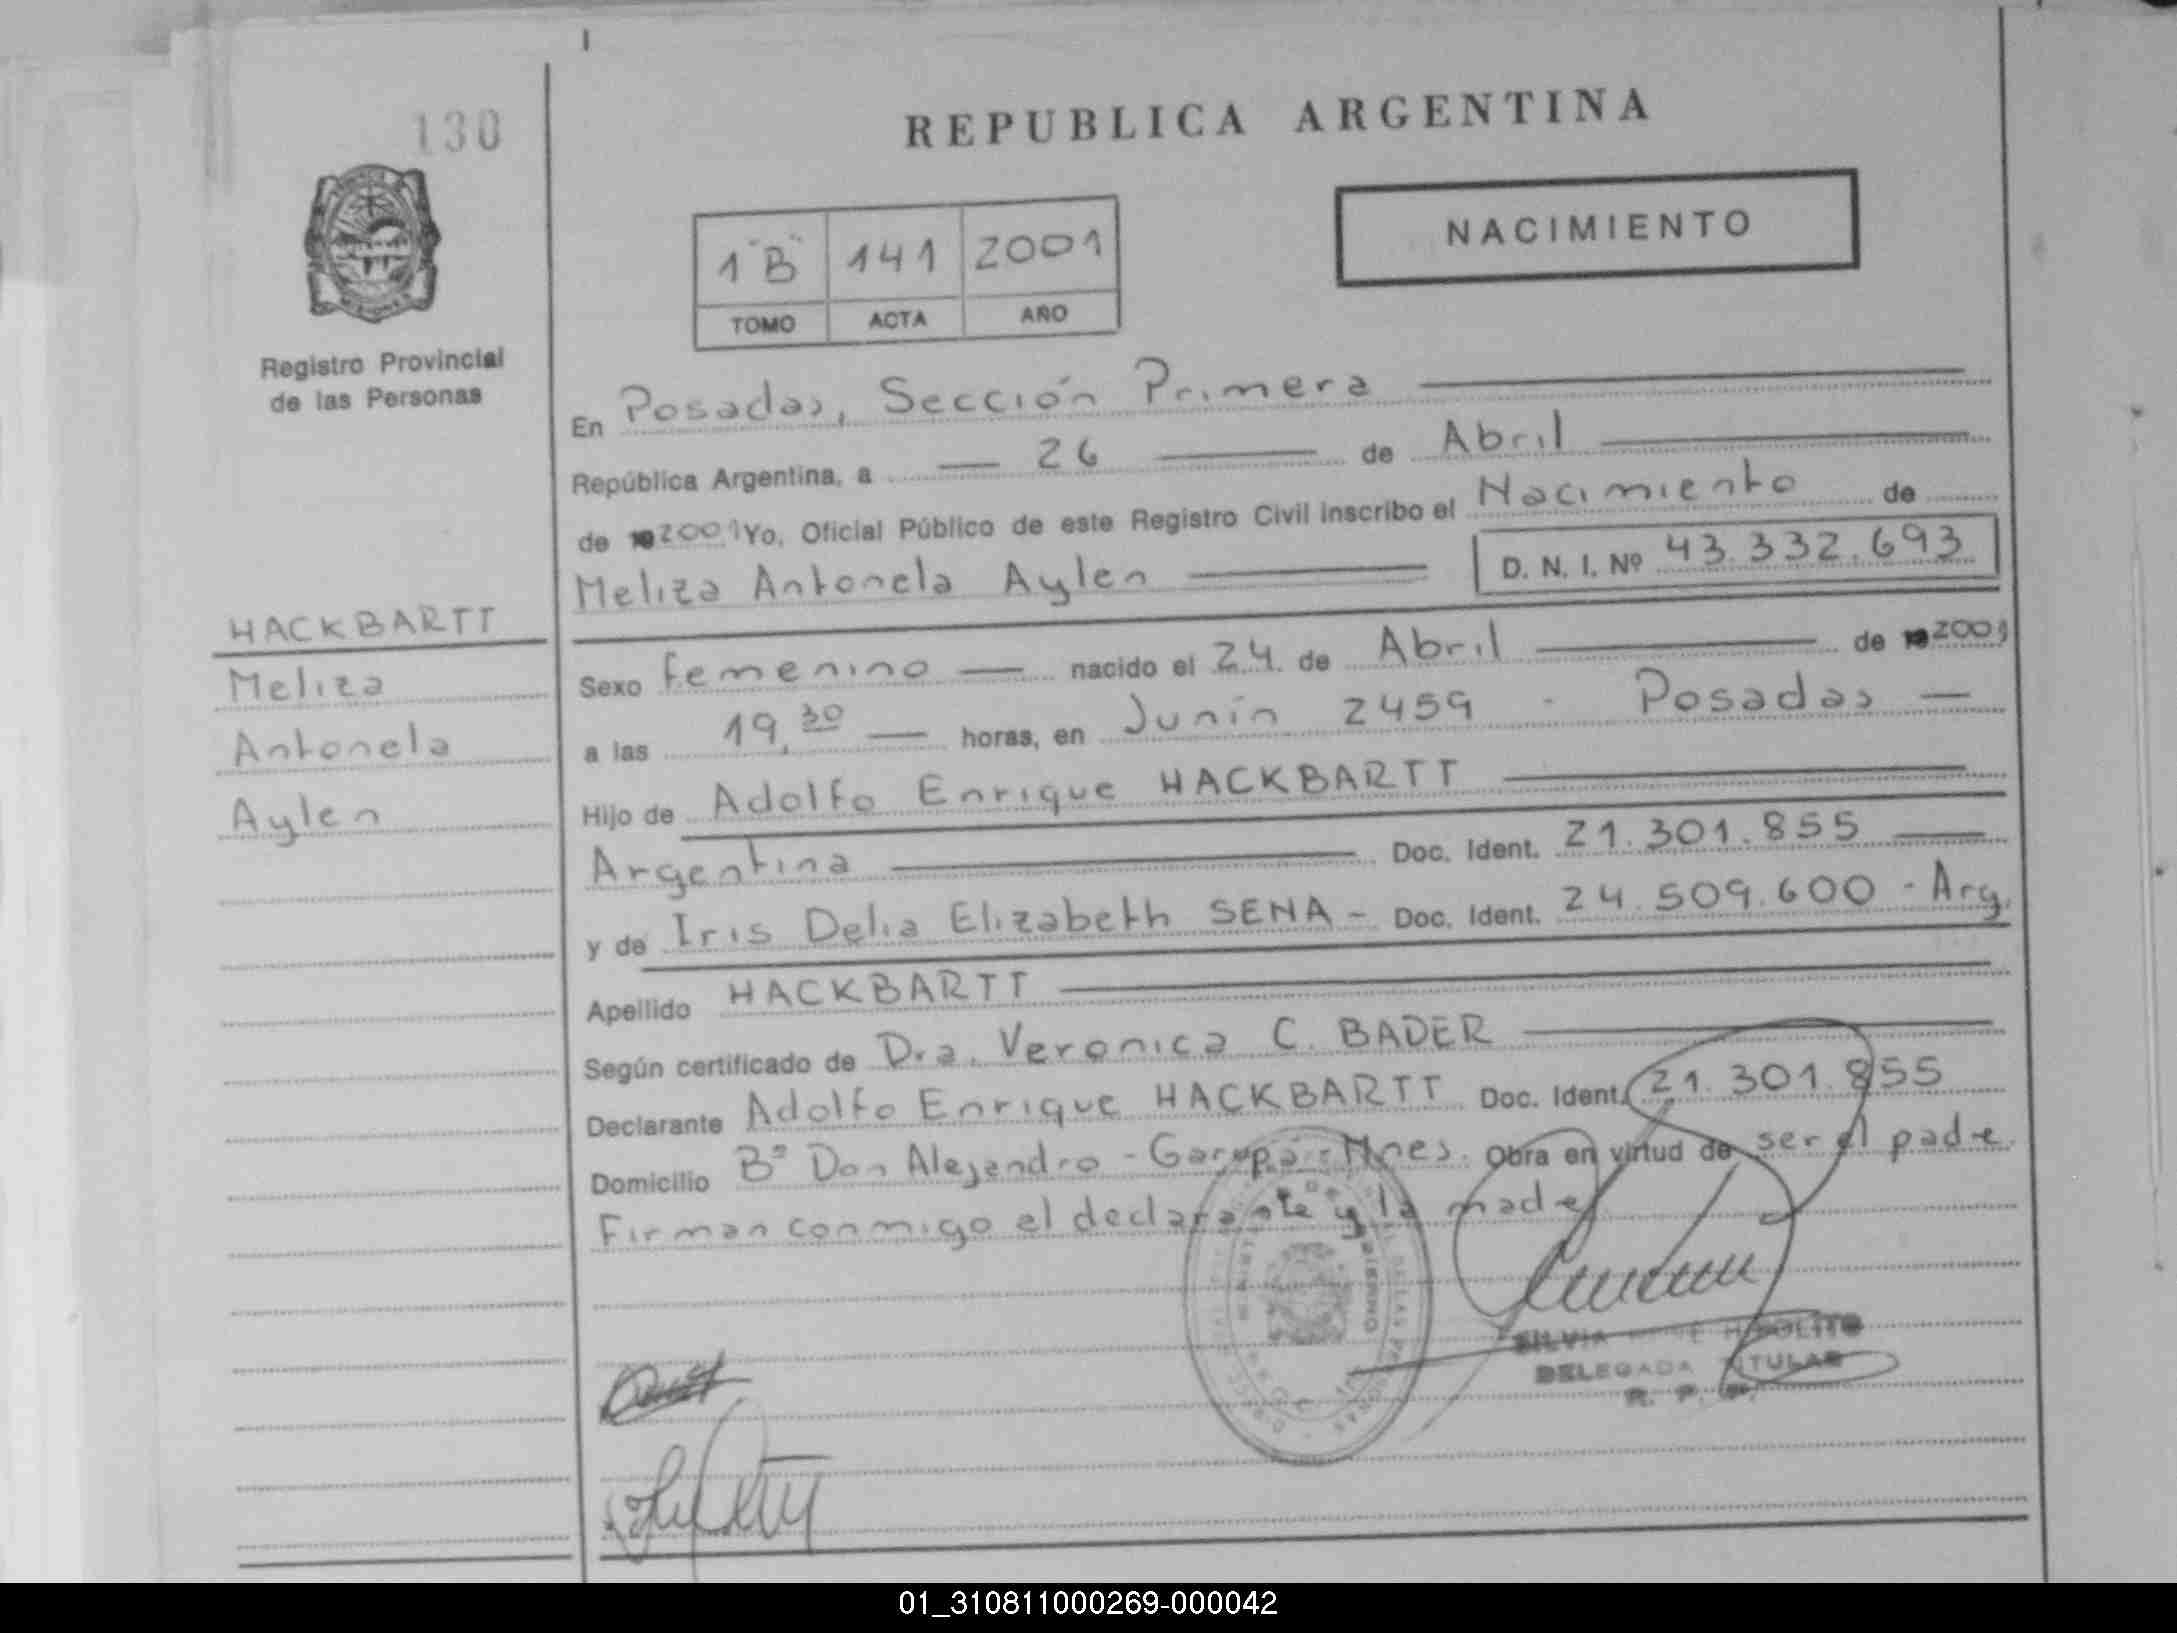 130
REPUBLICA ARGENTINA
NACIMIENTO
1 "B" 141 2001
TOMO ACTA AÑO
Registro Provincial
de las Personas
En Posadas, Sección Primera
República Argentina, a 26 de Abril
de 192001 Yo, Oficial Público de este Registro Civil inscribo el Nacimiento de
Meliza Antonela Aylen D. N. I. Nº 43.332.693
HACKBARTT
Meliza
Antonela
Aylen
Sexo femenino nacido el 24 de Abril de 192001
a las 19,30 horas, en Junín 2459 - Posadas
Hijo de Adolfo Enrique HACKBARTT
Argentina Doc. Ident. 21.301.855
y de Iris Delia Elizabeth SENA - Doc. Ident. 24.509.600 - Arg.
Apellido HACKBARTT
Según certificado de Dra. Veronica C. BADER
Declarante Adolfo Enrique HACKBARTT Doc. Ident. 21.301.855
Domicilio Bº Don Alejandro - Garupá - Mnes. Obra en virtud de ser el padre.
Firman conmigo el declarante y la madre
SILVIA HIPOLITO
DELEGADA TITULAR
R. P. P.
01_310811000269-000042